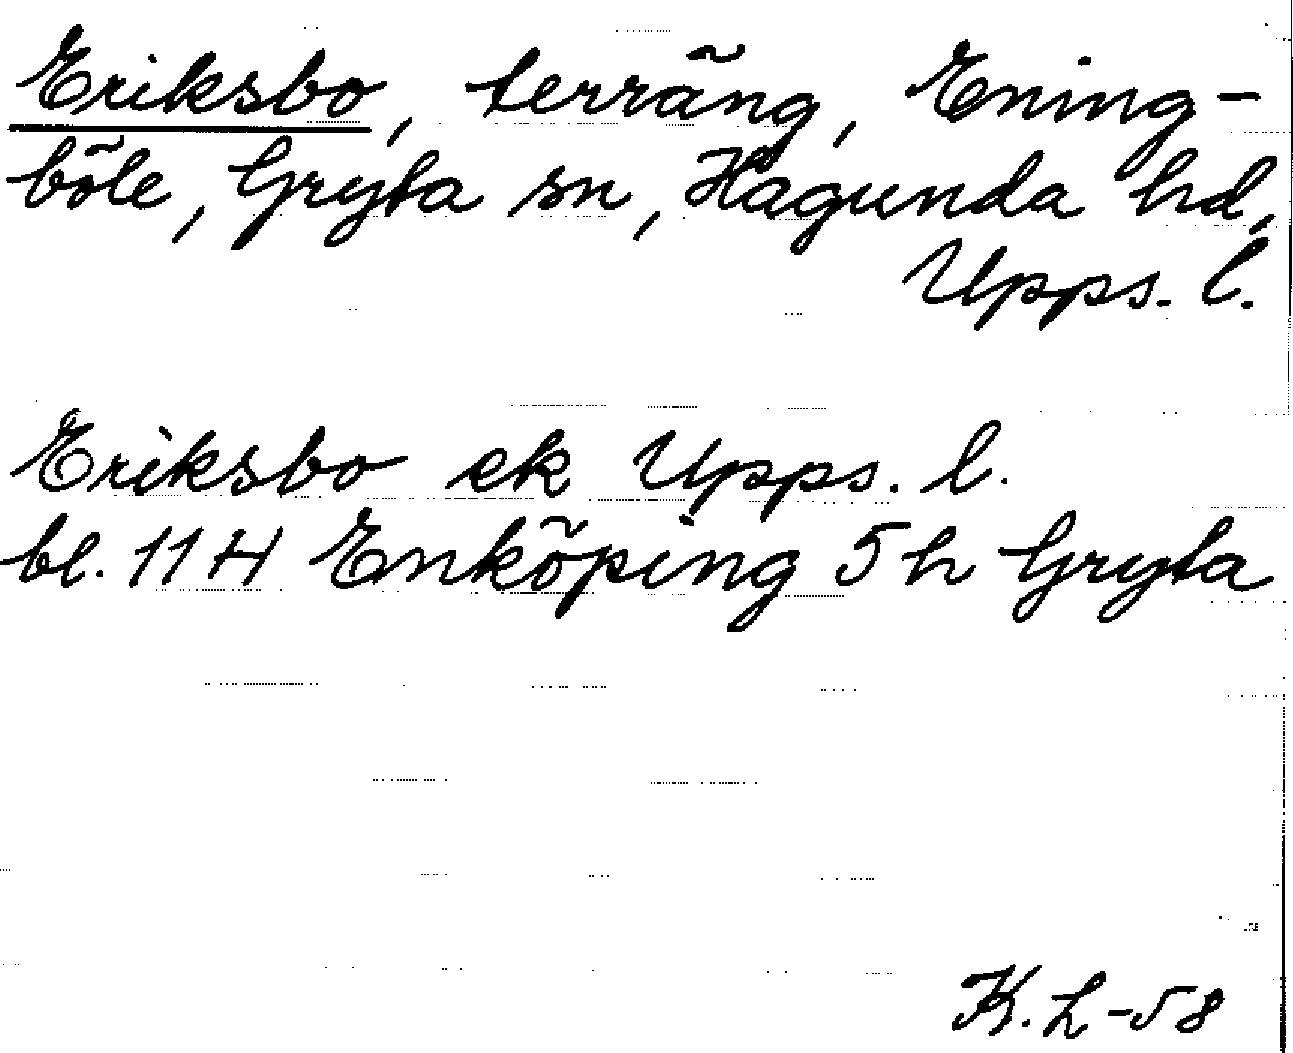 Eriksbo, terräng, Ening-
böle, Gryta sn, Hagunda hd,
Upps. l.
Eriksbo ek Upps. l.
bl. 11 H Enköping 5 h Gryta
K. L -58